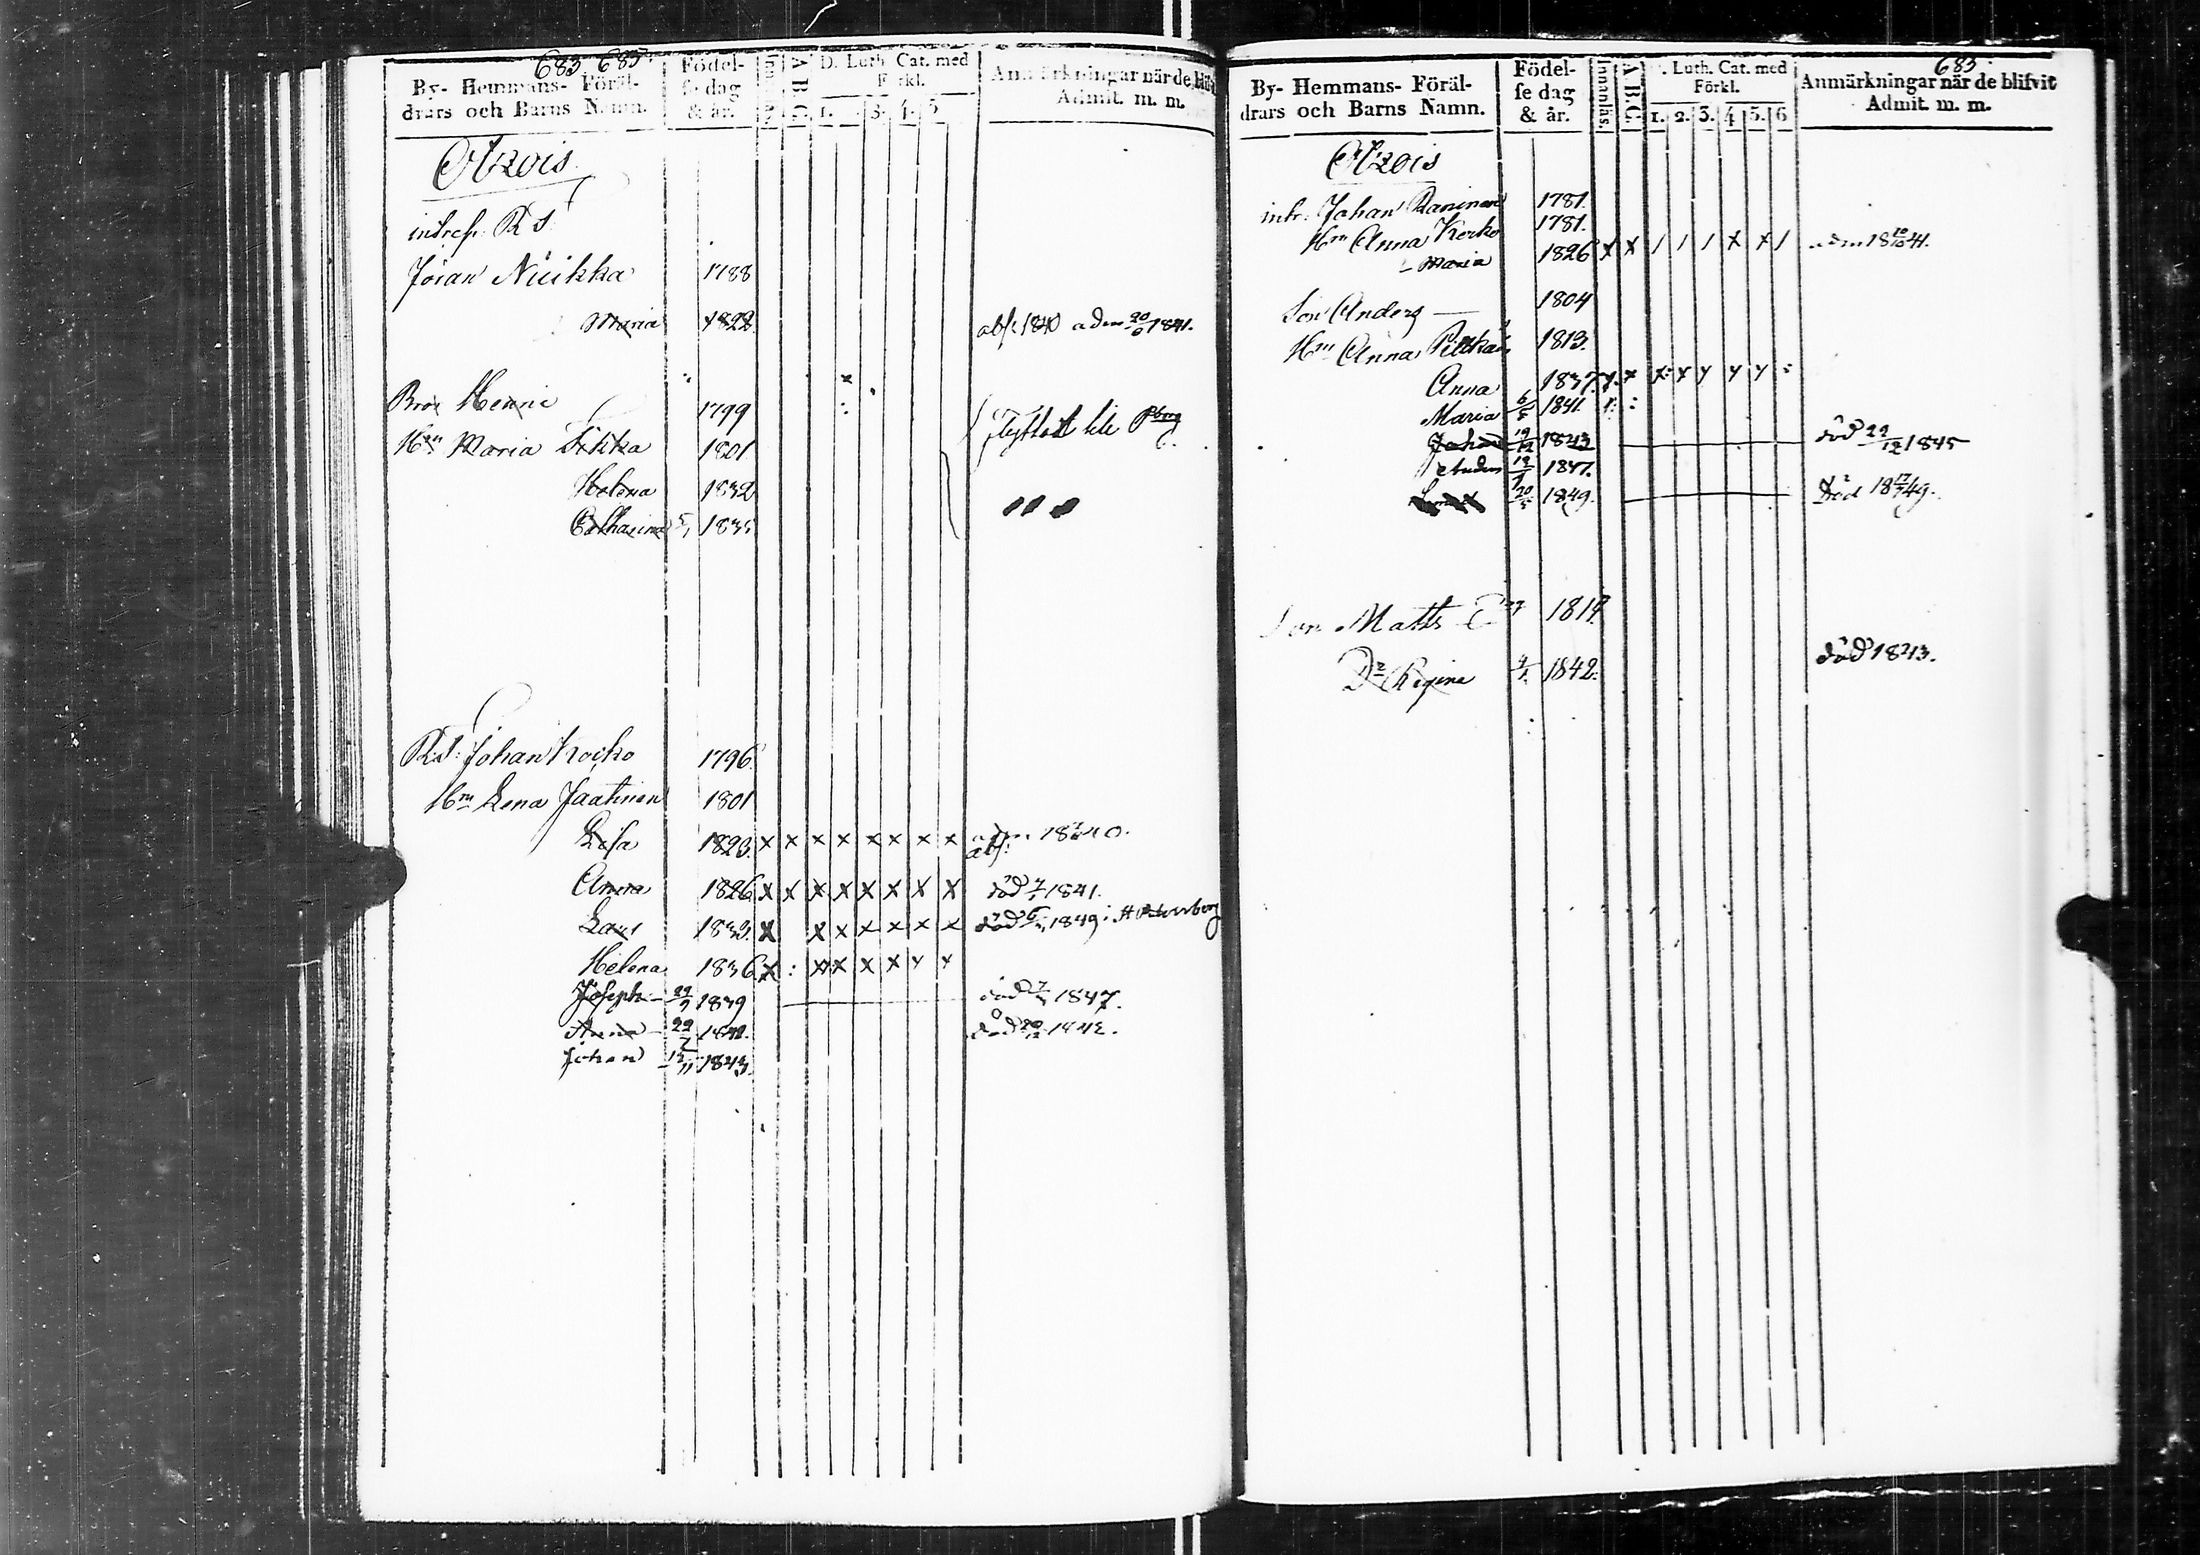 683 683
By- Hemmans- Föräl-
drars och Barns Namn.
Födel-
se dag
& år.
A.B.C.
D. Luth. Cat. med
Förkl.
1. 3. 4. 5
Anmärkningar när de blifvit
Admit. m. m.
Otzois
intress: R S
Jöran Niikka 1788
Maria 1822 abs: 1840 adm 20/6 1841.
Bror Henric 1799
Hn Maria Sikka 1801 flyttat till Pborg
Helena 1832
Catharina 5/1 1835
R.S. Johan Kocko 1796
Hn Lena Jaatinen 1801
Lisa 1823. x x x x x x x x adm 1840. abs:
Anna 1826 x x x x x x x x död 1841.
Lars 1833. x x x x x x x död 1849 i St Petersborg
Helena 1836 x : x x x x x x
Joseph 1839 död 1847.
Anna 22/7 1842. död 1842.
Johan 1843
683
By- Hemmans- Föräl-
drars och Barns Namn.
Födel-
se dag
& år.
Innanläs.
A.B.C.
Luth. Cat. med
Förkl.
1. 2. 3. 4 5. 6
Anmärkningar när de blifvit
Admit. m. m.
Otzois
intr: Johan Raninen 1781.
Hn Anna Kocko 1781.
Maria 1826 x x / / / x x / adm 1841.
Son Anders 1804
Hn Anna Pitkän 1813.
Anna 1837
Maria 6/5 1841
Johan 19/12 1843 död 22/12 1845
Anders 1847.
1849. död 1849.
Son Matts 1819
Dr Regina 1842. död 1843.